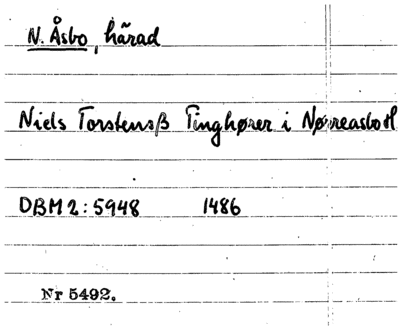 N. Åsbo, härad
Niels Torstensß Tinghører i Nørreasbo H
DBM 2: 5948 1486
Nr 5492.